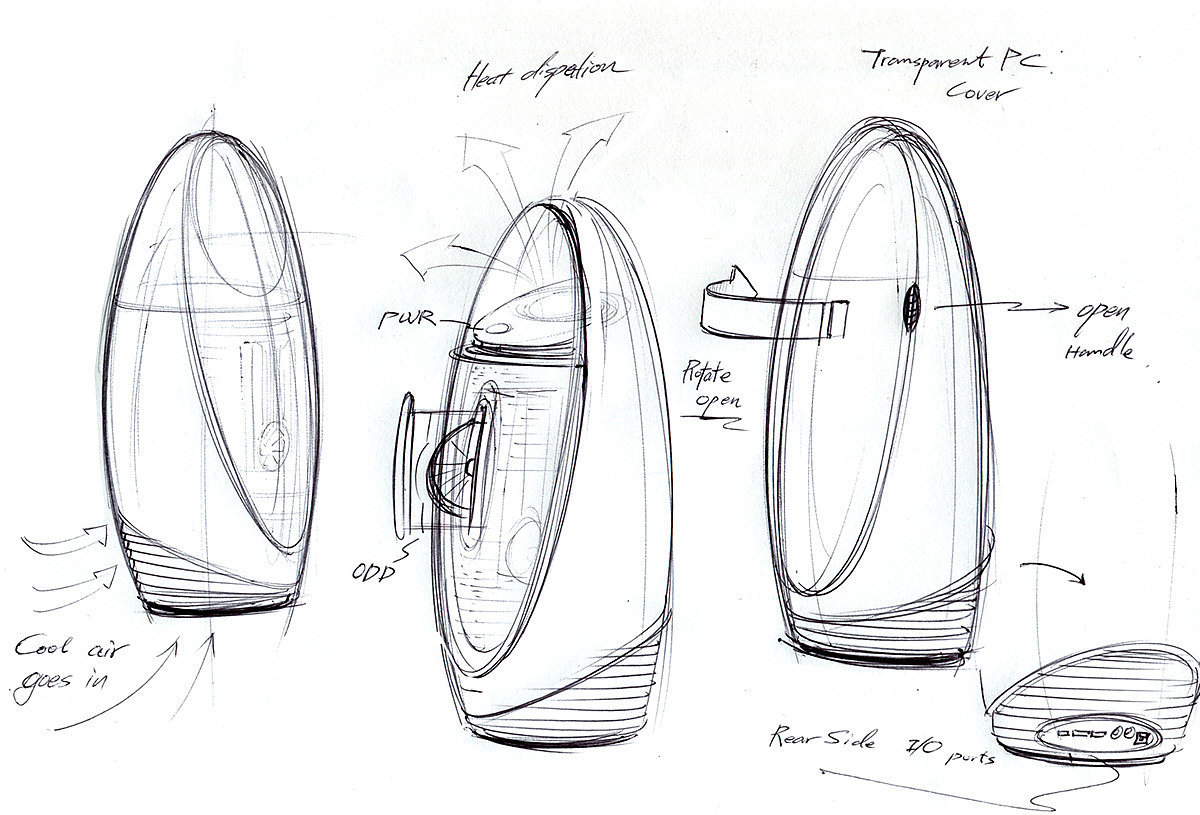 Heat dispetion
Transparent PC
Cover
PWR
open
Handle
Rotate
open
ODD
Cool air
goes in
Rear Side I/O ports